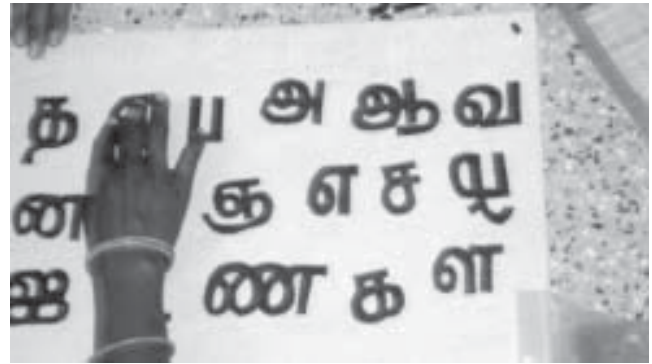 த ப அ ஆ வ
ன ஞ எ ச ழ
ஐ ண க ள